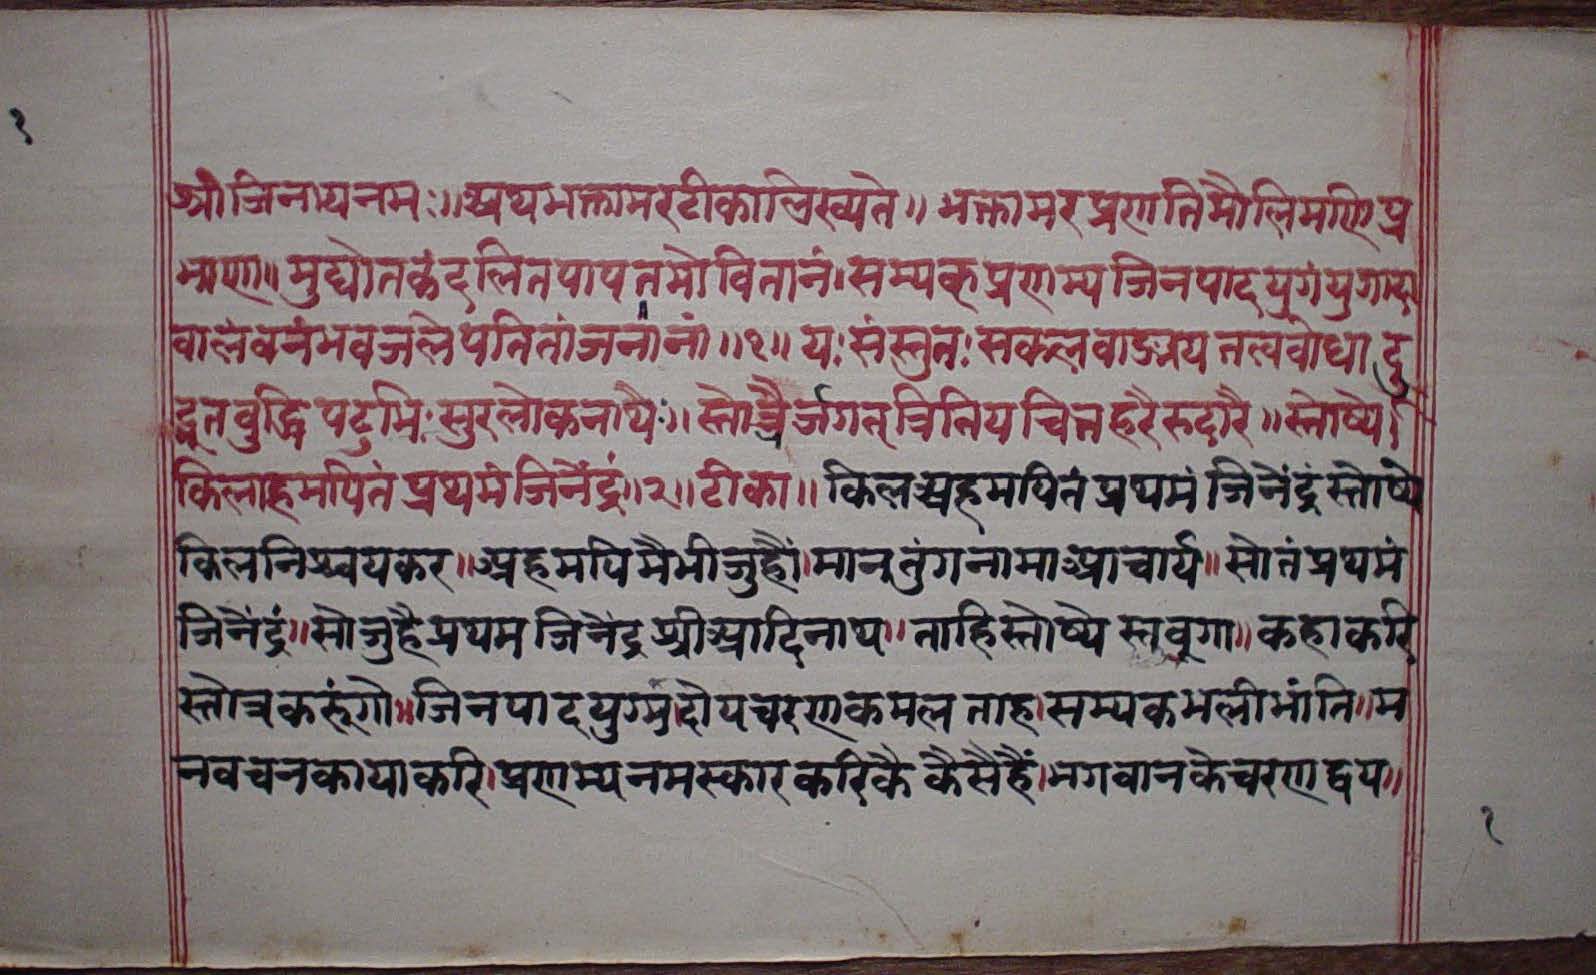 १
श्री जिनाय नमः ॥ अथ भक्तामर टीका लिख्यते ॥ भक्तामर प्रणति मौलि मणि प्र
भाणा ॥ मुद्योतकं दलित पाप तमो वितानं । सम्यक् प्रणम्य जिन पाद युगं युगादा
वालंवनं भव जले पतितां जनानां ॥ १ ॥ यः संस्तुतः सकल वाङ्मय तत्ववोधा दु
द्भूत वुद्धि पटुभिः सुरलोकनाथैः ॥ स्तोत्रैर्जगत् त्रितिय चित्त हरै रुदारै ॥ स्तोष्ये
किलाहमपि तं प्रथमं जिनेंद्रं ॥ २ ॥ टीका ॥ किल अहमपि तं प्रथमं जिनेंद्रं स्तोष्ये
किल निश्चय कर ॥ अहमपि मै भी जु हौं । मानतुंग नामा आचार्य ॥ सो तं प्रथमं
जिनेंद्रं ॥ सो जु है प्रथम जिनेंद्र श्री आदिनाथ ॥ ताहि स्तोष्ये स्तवूगा ॥ कहा करि
स्तोत्र करूंगो ॥ जिन पाद युग्मं । दोय चरण कमल ताह । सम्यक भली भांति ॥ म
न वचन काया करि । प्रणम्य नमस्कार करिकै कैसै हैं । भगवान के चरण द्वय ॥
१